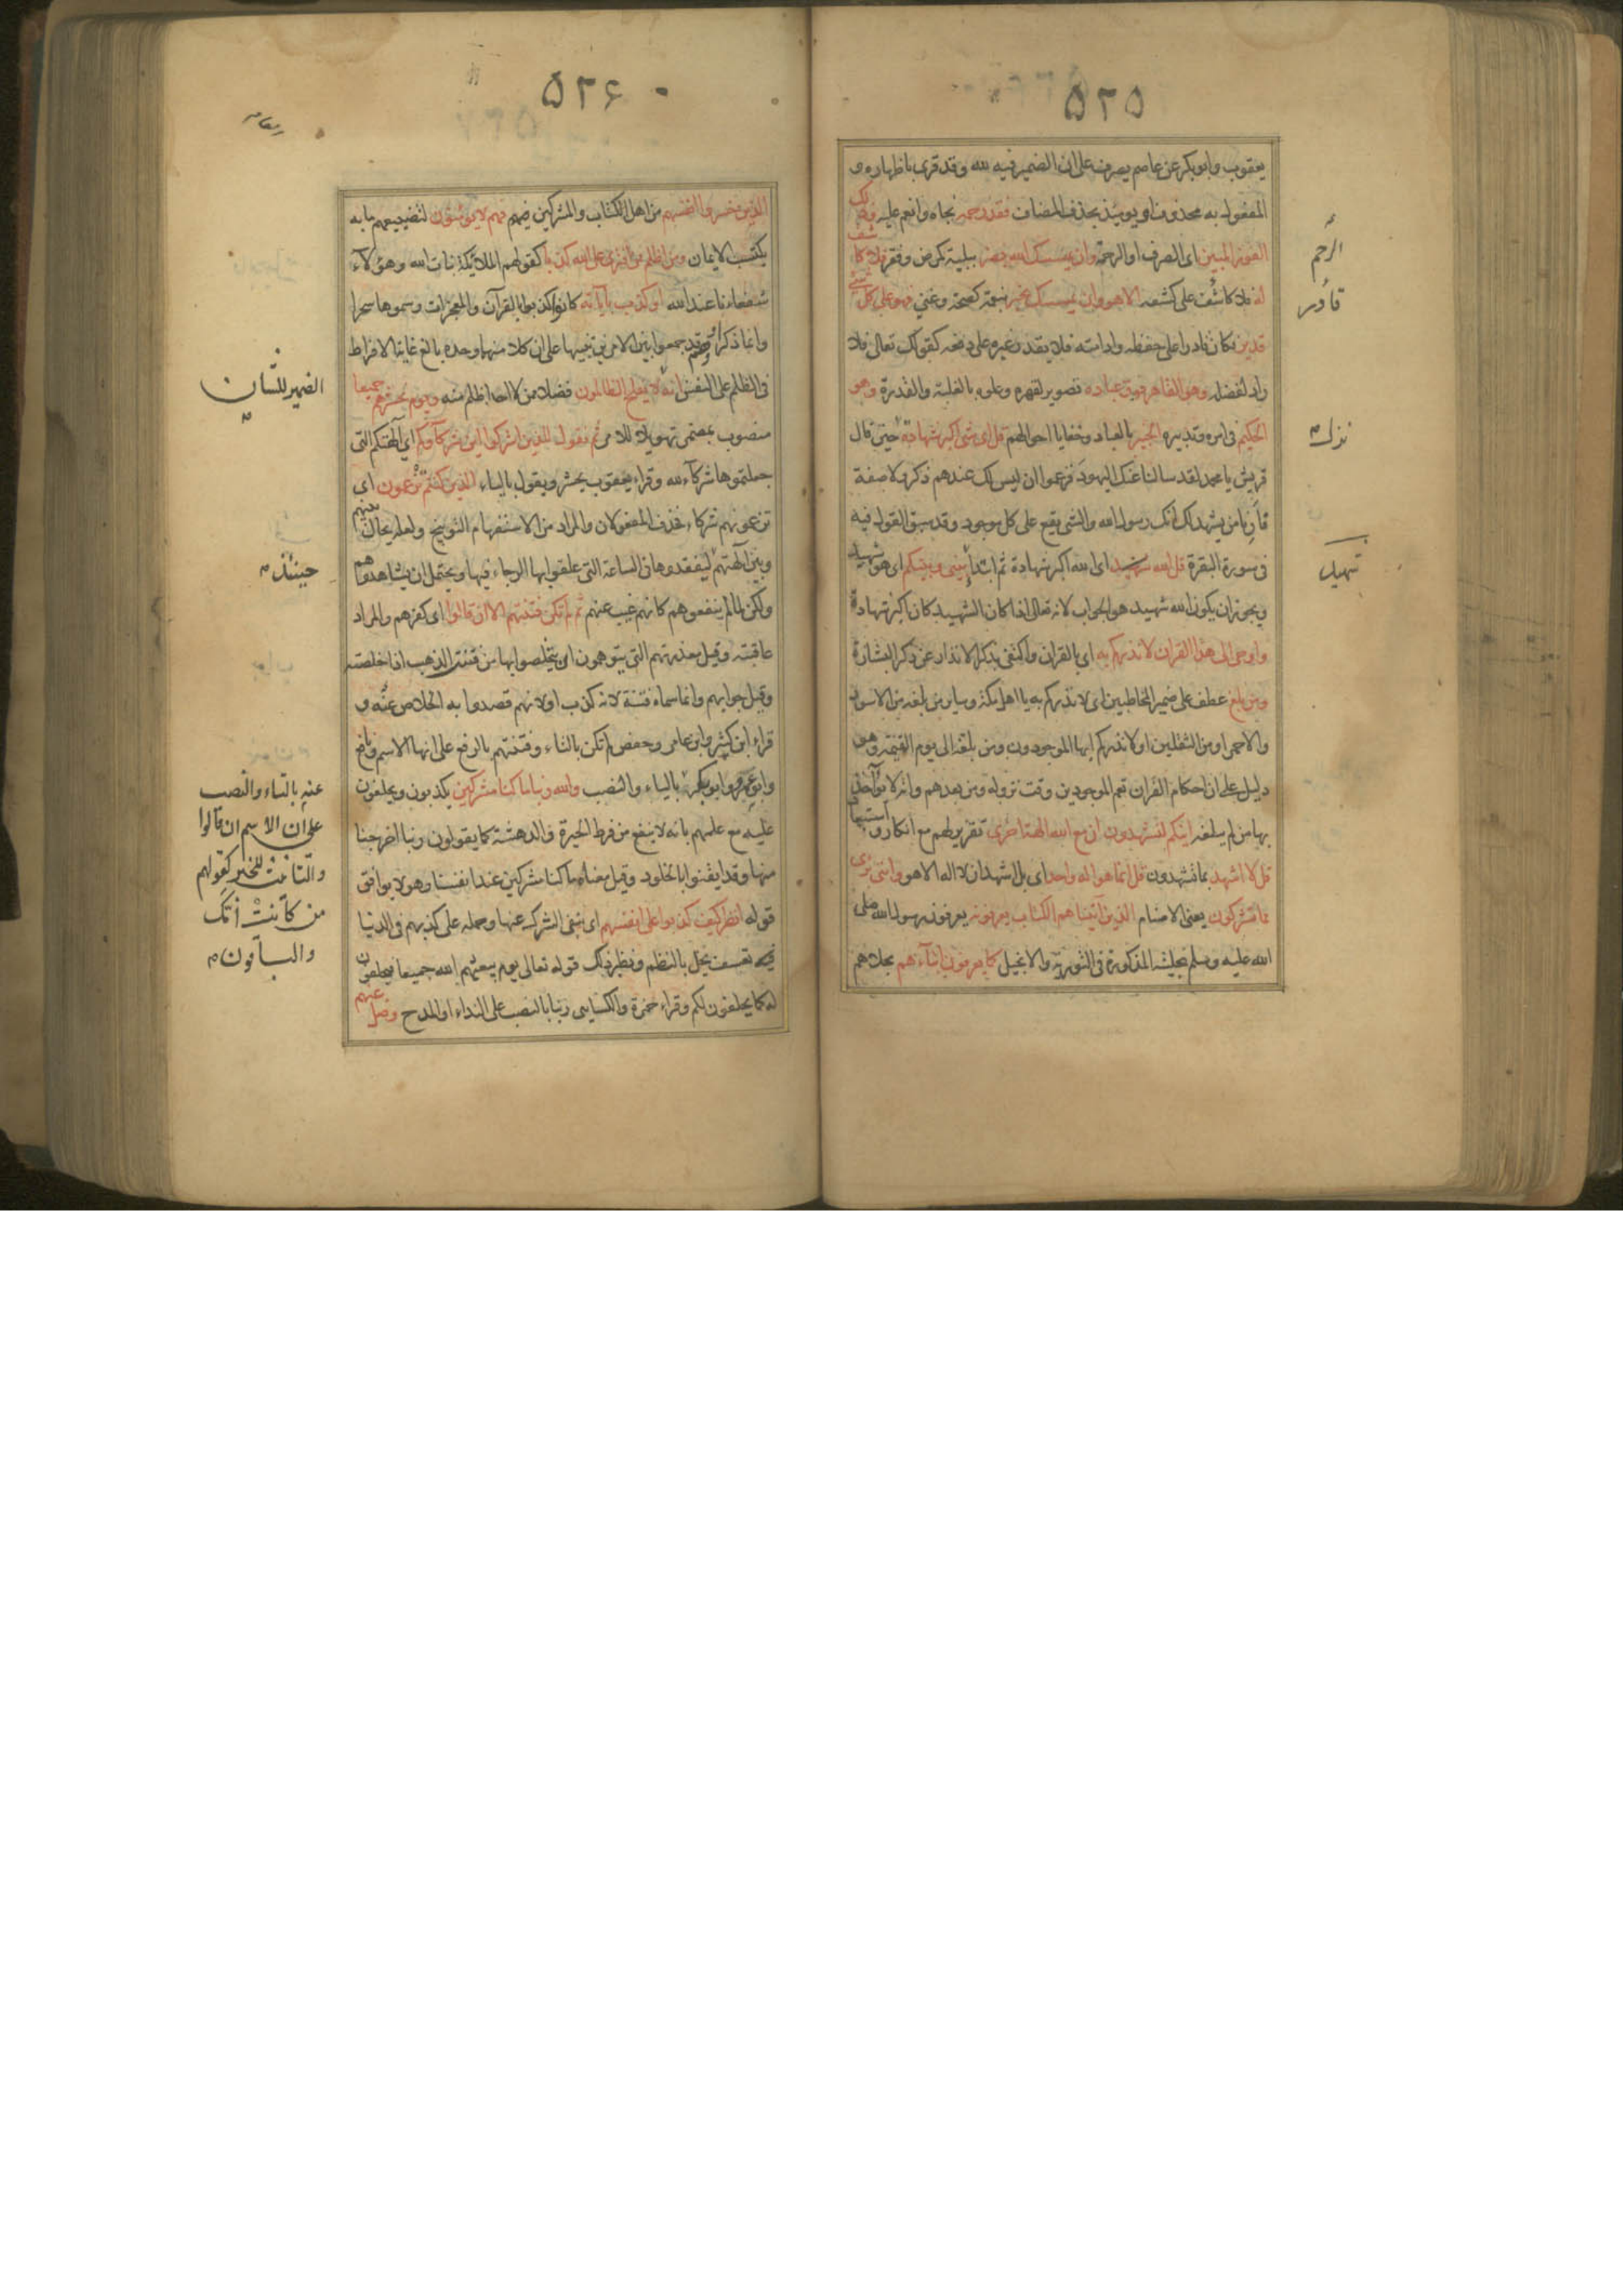 ۵۲۵
يعقوب وابوبكر عن عاصم يصرف على ان الضمير فيه لله وقد قرئ باظهاره و
المفعول به محذوف او يومئذ بحذف المضاف فقد رحمه نجاه وانعم عليه وذلك
الفوز المبين اى الصرف او الرحمة وان يمسسك الله بضر ببلية كمرض وفقر فلا كاشف
له فلا كاشف على كشفه الا هو وان يمسسك بخير بنعمة كصحة وغنى فهو على كل شئ
قدير فكان قادرا على حفظه وادامته فلا يقدر غيره على دفعه كقوله تعالى فلا
راد لفضله وهو القاهر فوق عباده تصوير لقهره وعلوه بالغلبة والقدرة وهو
الحكيم فى امره وتدبيره الخبير بالعباد وخفايا احوالهم قل اى شئ اكبر شهادة حين قال
قريش يا محمد لقد سالنا عنك اليهود فزعموا ان ليس لك عندهم ذكر ولا صفة
فأرنا من يشهد لك انك رسول الله والشئ يقع على كل موجود وقد سبق القول فيه
فى سورة البقرة قل الله شهيد اى الله اكبر شهادة ثم ابتدأ بينى وبينكم اى هو شهيد
ويجوز ان يكون الله شهيد هو الجواب لانه تعالى اذا كان الشهيد كان اكبر شهادة
واوحى الى هذا القران لانذركم به اى بالقران واكتفى بذكر الانذار عن ذكر البشارة
ومن بلغ عطف على ضمير المخاطبين اى لانذركم به يا اهل مكة وساير من بلغه من الاسود
والاحمر او من الثقلين او لانذركم ايها الموجودون ومن بلغه الى يوم القيمة وهو
دليل على ان احكام القران تعم الموجودين وقت نزوله ومن بعدهم وانه لا يؤاخذ
بها من لم يبلغه اينكم لتشهدون ان مع الله الهة اخرى تقرير لهم مع انكار واستبعاد
قل لا اشهد بما تشهدون قل انما هو اله واحد اى بل اشهد ان لا اله الا هو واننى برى
مما تشركون يعنى الاصنام الذين آتيناهم الكتاب يعرفونه يعرفون رسول الله صلى
الله عليه وسلم بحليته المذكورة فى التورية والانجيل كما يعرفون ابناءهم بحلاهم
الرحم
قادر
نزلت
تسهيل
۵۲۶
الذين خسروا انفسهم من اهل الكتاب والمشركين فهم لا يؤمنون لتضييعهم ما به
يكتسب الايمان ومن اظلم ممن افترى على الله كذبا كقولهم الملائكة بنات الله وهؤلاء
شفعاءنا عند الله او كذب بآياته كانوا كذبوا بالقرآن والمعجزات وسموها سحرا
وانما ذكر او وهم قد جمعوا بين الامرين تنبيها على ان كلا منهما وحده بالغ غاية الافراط
فى الظلم على النفس انه لا يفلح الظالمون فضلا من لا احد اظلم منه ويوم نحشرهم جميعا
منصوب بمضمر تهويلا للامر ثم نقول للذين اشركوا اين شركآؤكم اى آلهتكم التى
جعلتموها شركآء لله وقراء يعقوب يحشر ويقول بالياء الذين كنتم تزعمون اى
تزعمونهم شركاء فحذف المفعولان والمراد من الاستفهام التوبيخ ولعله يحال بينهم
وبين آلهتهم ليفقدوها فى الساعة التى علقوا بها الرجاء فيها ويحتمل ان يشاهدوهم
ولكن لما لم ينفعوهم كانهم غيب عنهم ثم لم تكن فتنتهم الا ان قالوا اى كفرهم والمراد
عاقبته وقيل معذرتهم التى يتوهمون ان يتخلصوا بها من فتنت الذهب اذا خلصته
وقيل جوابهم وانما سماه فتنة لانه كذب او لانهم قصدوا به الخلاص عنه و
قراء ابن كثير وابن عامر وحفص لم تكن بالتاء وفتنتهم بالرفع على انها الاسم ونافع
وابو عمرو وابو بكر بالياء والنصب والله ربنا ما كنا مشركين يكذبون ويحلفون
عليه مع علمهم بانه لا ينفع من فرط الحيرة والدهشة كما يقولون ربنا اخرجنا
منها وقد ايقنوا بالخلود وقيل معناه ما كنا مشركين عند انفسنا وهو لا يوافق
قوله انظر كيف كذبوا على انفسهم اى بنفى الشرك عنها وحمله على كذبهم فى الدنيا
فيه تعسف يخل بالنظم ونظير ذلك قوله تعالى يوم يبعثهم الله جميعا فيحلفون
له كما يحلفون لكم وقراء حمزة والكسايى ربنا بالنصب على النداء او المدح وضل عنهم
الضمير للشان
حينئذ
عنه بالتاء والنصب
على ان الاسم ان قالوا
والتانيث للخبر كقولهم
من كانت أمّك
والباقون